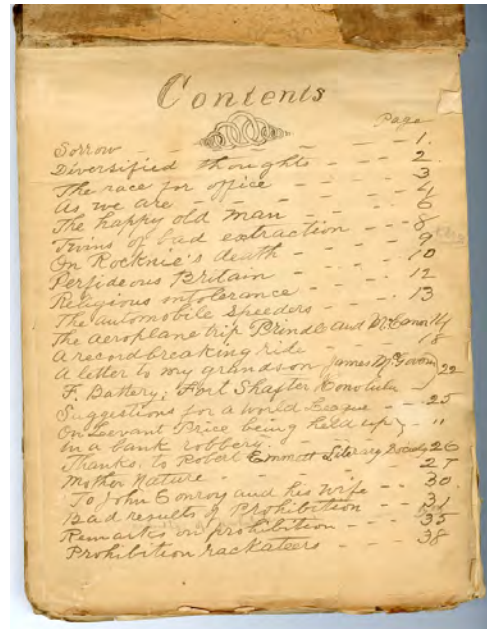 Contents
Page
Sorrow - - - - - - 1.
Diversified thoughts - - - 2
The race for office - - - - 3
As we are - - - - - - 4
The happy old man - - - - 6
Twins of bad extraction - - - 8
On Rocknie's death - - - - 9
Perfideous Britain - - - - 10
Religious intolerance - - - - 12
The automobile speeders - - - . 13
The aeroplane trip Brindl and 14
A record breaking ride - - - 18
A letter to my grandson James McGovern
F. Battery, Fort Shafter Honolulu - 22
Suggestions for a World League - - 25
On Levant Price being held up - "
in a bank robbery.
Thanks, to Robert Emmott Literary Society 26
Mother Nature - - - - - 27
To John Conroy and his wife - - 30
Bad results of Prohibition - - - 31
Remarks on prohibition - - - 35
Prohibition rackateers - - - 38